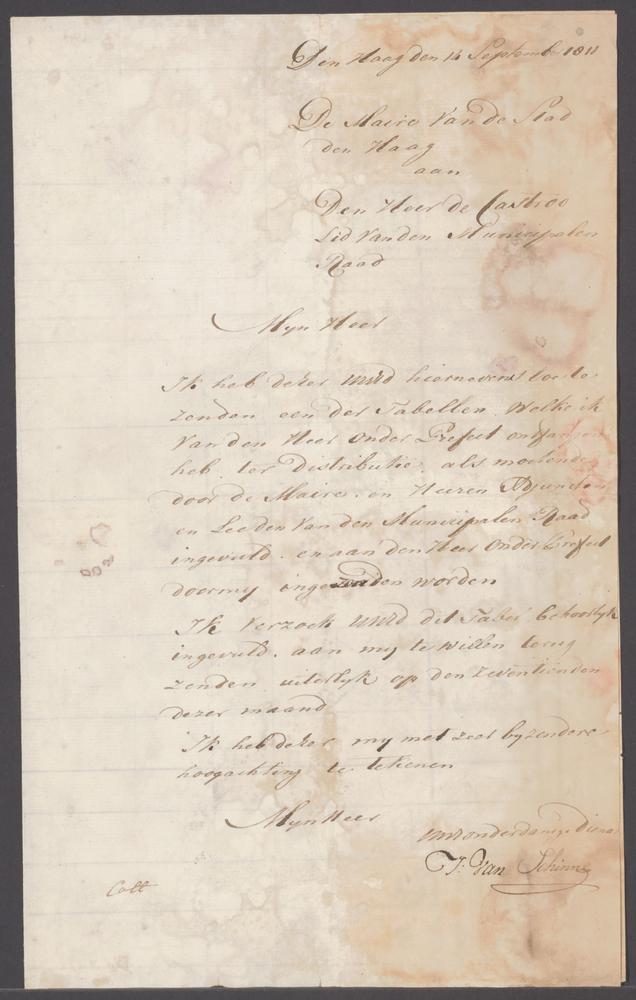 Den Haag den 14 September 1811
De Maire van de Stad
den Haag
aan
Den Heer de Castroo
Lid van den Municipalen
Raad
Myn Heer
Ik heb dezer UWEd hiernevens toe te
zenden een der Tabellen welke ik
van den Heer onder Prefect ontfangen
heb ter distributie, als moetende
door de Maire en Heeren Adjuncten
en Leeden van den Municipalen Raad
ingevuld, en aan den Heer onder Prefect
door my ingezonden worden
Ik verzoek UWEd dit Tabel behoorlyk
ingevuld aan my te willen terug
zenden uiterlyk op den zeventienden
dezer maand
Ik heb de eer my met zeer byzondere
hoogachting te tekenen
Myn Heer
onderdanige Dienaar
J. Van Schinne
Coll